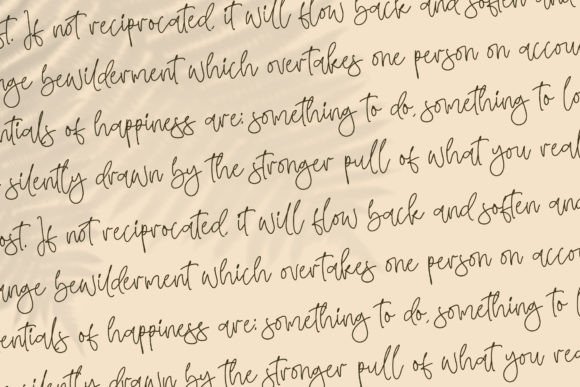 ost. If not reciprocated it will flow back and soften and
ange bewilderment which overtakes one person on accou
entials of happiness are: something to do, something to lo
silently drawn by the stronger pull of what you real
ost. If not reciprocated it will flow back and soften and
ange bewilderment which overtakes one person on accou
entials of happiness are: something to do, something to l
silently drawn by the stronger pull of what you rea